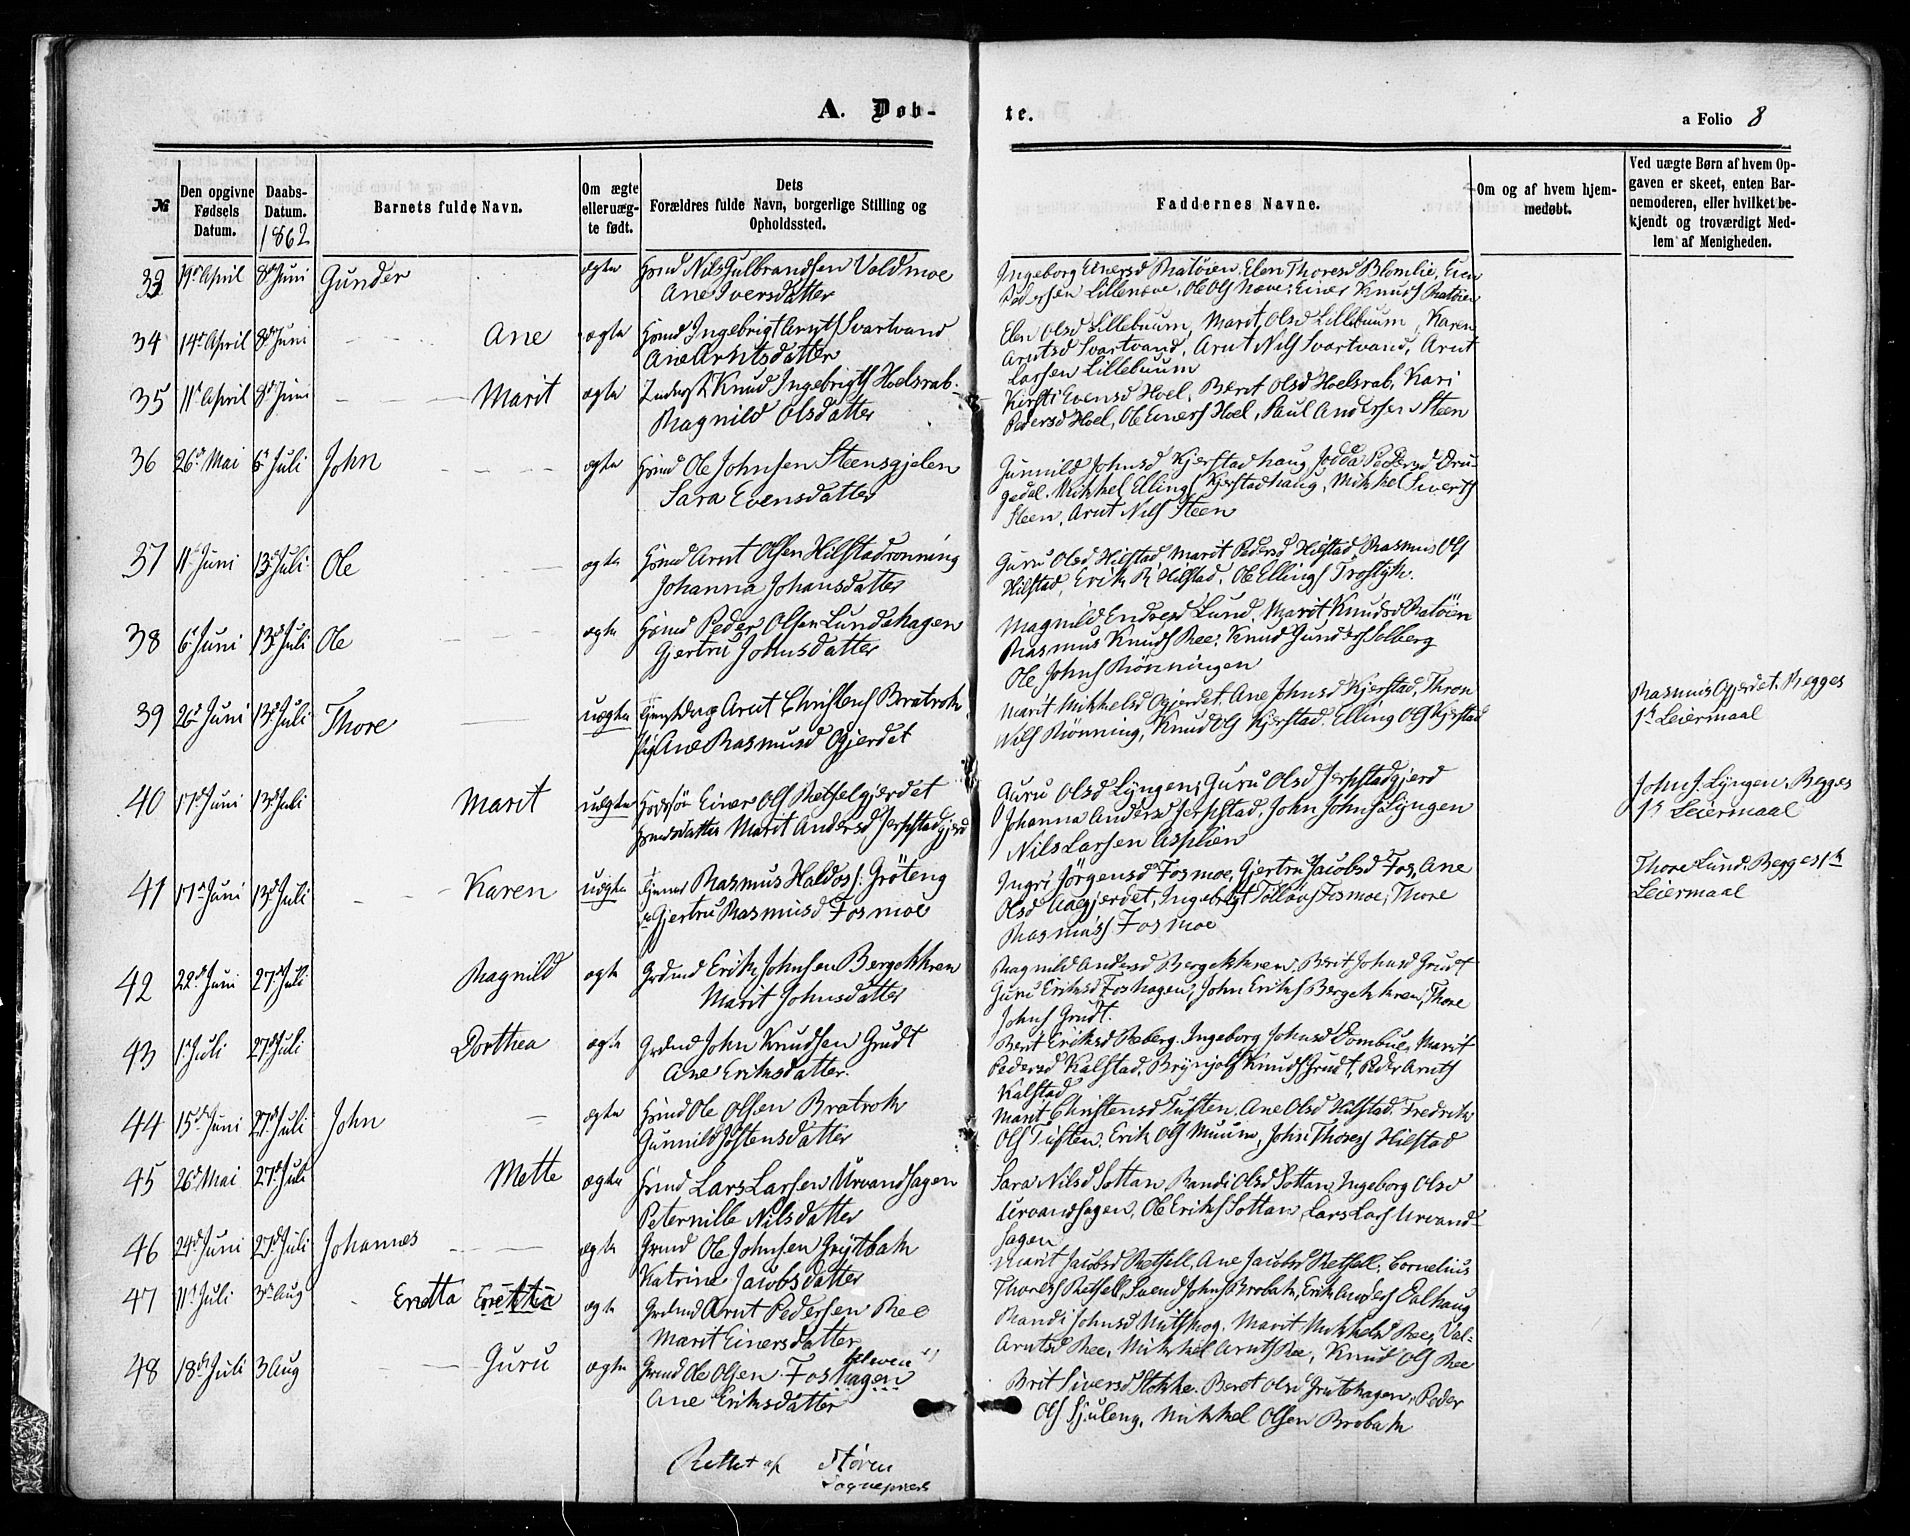 A. Døb-
te.
a Folio 8
№
Den opgivne
Fødsels
Datum.
Daabs-
Datum.
1862
Barnets fulde Navn.
Om ægte
eller uæg-
te født.
Dets
Forældres fulde Navn, borgerlige Stilling og
Opholdssted.
Faddernes Navne.
Om og af hvem hjem-
medøbt.
Ved uægte Børn af hvem Op-
gaven er skeet, enten Bar-
nemoderen, eller hvilket be-
kjendt og troværdigt Med-
lem af Menigheden.
33 19de April 8de Juni Gunder ægte Nils Gulbrandsen Voldmoe
Ane Iversdatter
Ingeborg Einersd Ratøien, Elen Thoresd Blomlie, Even
Pedersen Lillenæve, Ole Ols Næve, Einer Knuds Ratøien
34 14de April 8de Juni Ane ægte Ingebrigt Arnts Svartvand
Ane Arntsdatter
Elen Olsd Lillebuum, Marit Olsd Lillebuum, Karen
Arntsd Svartvand, Arnt Nils Svartvand, Arnt
Larsen Lillebuum
35 11te April 8de Juni Marit ægte Inderst Knud Ingebrigts Hoelsrab.
Ragnild Olsdatter
Kirsti Evensd Hoel, Berit Olsd Hoelsrab, Kari
Pedersd Hoel, Ole Einers Hoel, Paul Andersen Steen
36 26de Mai 6te Juli John ægte Ole Johnsen Steensgjelen
Sara Evensdatter
Gunnild Johnsd Kjerstadhaug, Jodda Pedersd Dru-
gedal, Mikkel Ellings Kjerstadhaug, Mikkel Siverts
Steen, Arnt Nils Steen
37 11te Juni 13de Juli Ole ægte Arnt Olsen Hilstadrønning
Johanna Johansdatter
Guru Olsd Hilstad, Marit Pedersd Hilstad, Rasmus Ols
Hilstad, Erik R. Hilstad, Ole Ellings Trostyk.
38 6te Juni 13de Juli Ole ægte Peder Olsen Lundshagen
Gjertru Johnsdatter
Magnild Endresd Lund, Marit Knudsd Ratøien
Rasmus Knuds Ree, Knud Gunders Solberg
Ole Johns Rönningen
39 26de Juni 13de Juli Thore uægte Arnt Christens Bratrok
Pige Ane Rasmusd Ogjerdet
Marit Mikkelsd Ogjerdet, Ane Johnsd Kjerstad, Thron
Nils Rönning, Knud Ols Kjerstad, Elling Ols Kjerstad
Rasmus Ogjerdet. Begges
1ste Leiermaal
40 17de Juni 13de Juli Marit uægte Einer Ols Retselgjerdet
Marit Andersd Jerpstadgjerd
Guru Olsd Lyngen, Guru Olsd Jerpstadgjerd
Johanna Andersd Jerpstad, John Johns Lyngen
Nils Larsen Asplien
John J. Lyngen. Begges
1ste Leiermaal
41 17de Juni 13de Juli Karen uægte Rasmus Haldos: Gröteng
Gjertru Rasmusd Fosmoe
Ingri Jörgensd Fosmoe, Gjertru Jacobsd Fos, Ane
Olsd Aaegjerdet, Ingebrigt Tollövs Fosmoe, Thore
Rasmus Fosmoe
Thore Lund. Begges 1ste
Leiermaal
42 22de Juni 27de Juli Ragnild ægte Grdmd Erik Johnsen Bergekkren
Marit Johnsdatter
Ragnild Andersd Bergekkren, Brit Johnsd Grudt
Guru Eriksd Foshagen, John Eriks Bergekkren, Thore
Johns Grudt.
43 1ste Juli 27de Juli Dorthea ægte Grdmd John Knudsen Grudt
Ane Eriksdatter.
Berit Eriksd Reberg, Ingeborg Johnsd Dombue, Marit
Pedersd Kalstad, Brynjolf Knuds Grudt, Peder Arnts
Kalstad
44 15de Juni 27de Juli John ægte Ole Olsen Bratrok
Gunnild Jostensdatter
Marit Christensd Tuften, Ane Olsd Hilstad, Fredrik
Ols Tuften, Erik Ols Muum, John Thores Hilstad
45 26de Mai 27de Juli Mette ægte Lars Larsen Urvandshagen
Peternille Nilsdatter
Sara Nilsd Sottan, Randi Olsd Sottan, Ingeborg Olsd
Urvandshagen, Ole Eriks Sottan, Lars Lars Urvands-
hagen
46 24de Juni 27de Juli Johannes ægte Grmd Ole Johnsen Grytbak
Katrine Jacobsdatter
Marit Jacobsd Retsell, Ane Jacobsd Retsell, Cornelius
Thores Retsell, Svend Johns Brobak, Erik Anders Dalhaug
47 11te Juli 3de Aug Eretta Eretta ægte Grdmd Arnt Pedersen Ree
Marit Einersdatter
Randi Johnsd Mitskog, Marit Mikkelsd Ree, Val-
Arntsd Ree, Mikkel Arnts Ree, Knud Ols Ree
48 18de Juli 3 Aug Guru ægte Grmd Ole Olsen Foshagen
Ane Eriksdatter
Brit Siversd Stokke, Beret Olsd Grutshagen, Peder
Ols Hjuleng, Mikkel Olsen Brobak
Rettet af Støren
Sognepræst